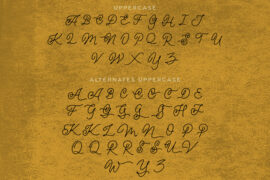 UPPERCASE
A B C D E F G H I J
K L M N O P Q R S T U
V W X Y Z
ALTERNATES UPPERCASE
A A B C C C O D E
F G G G G H I
K K L M N O P P
Q Q R R S U V
W Y Z